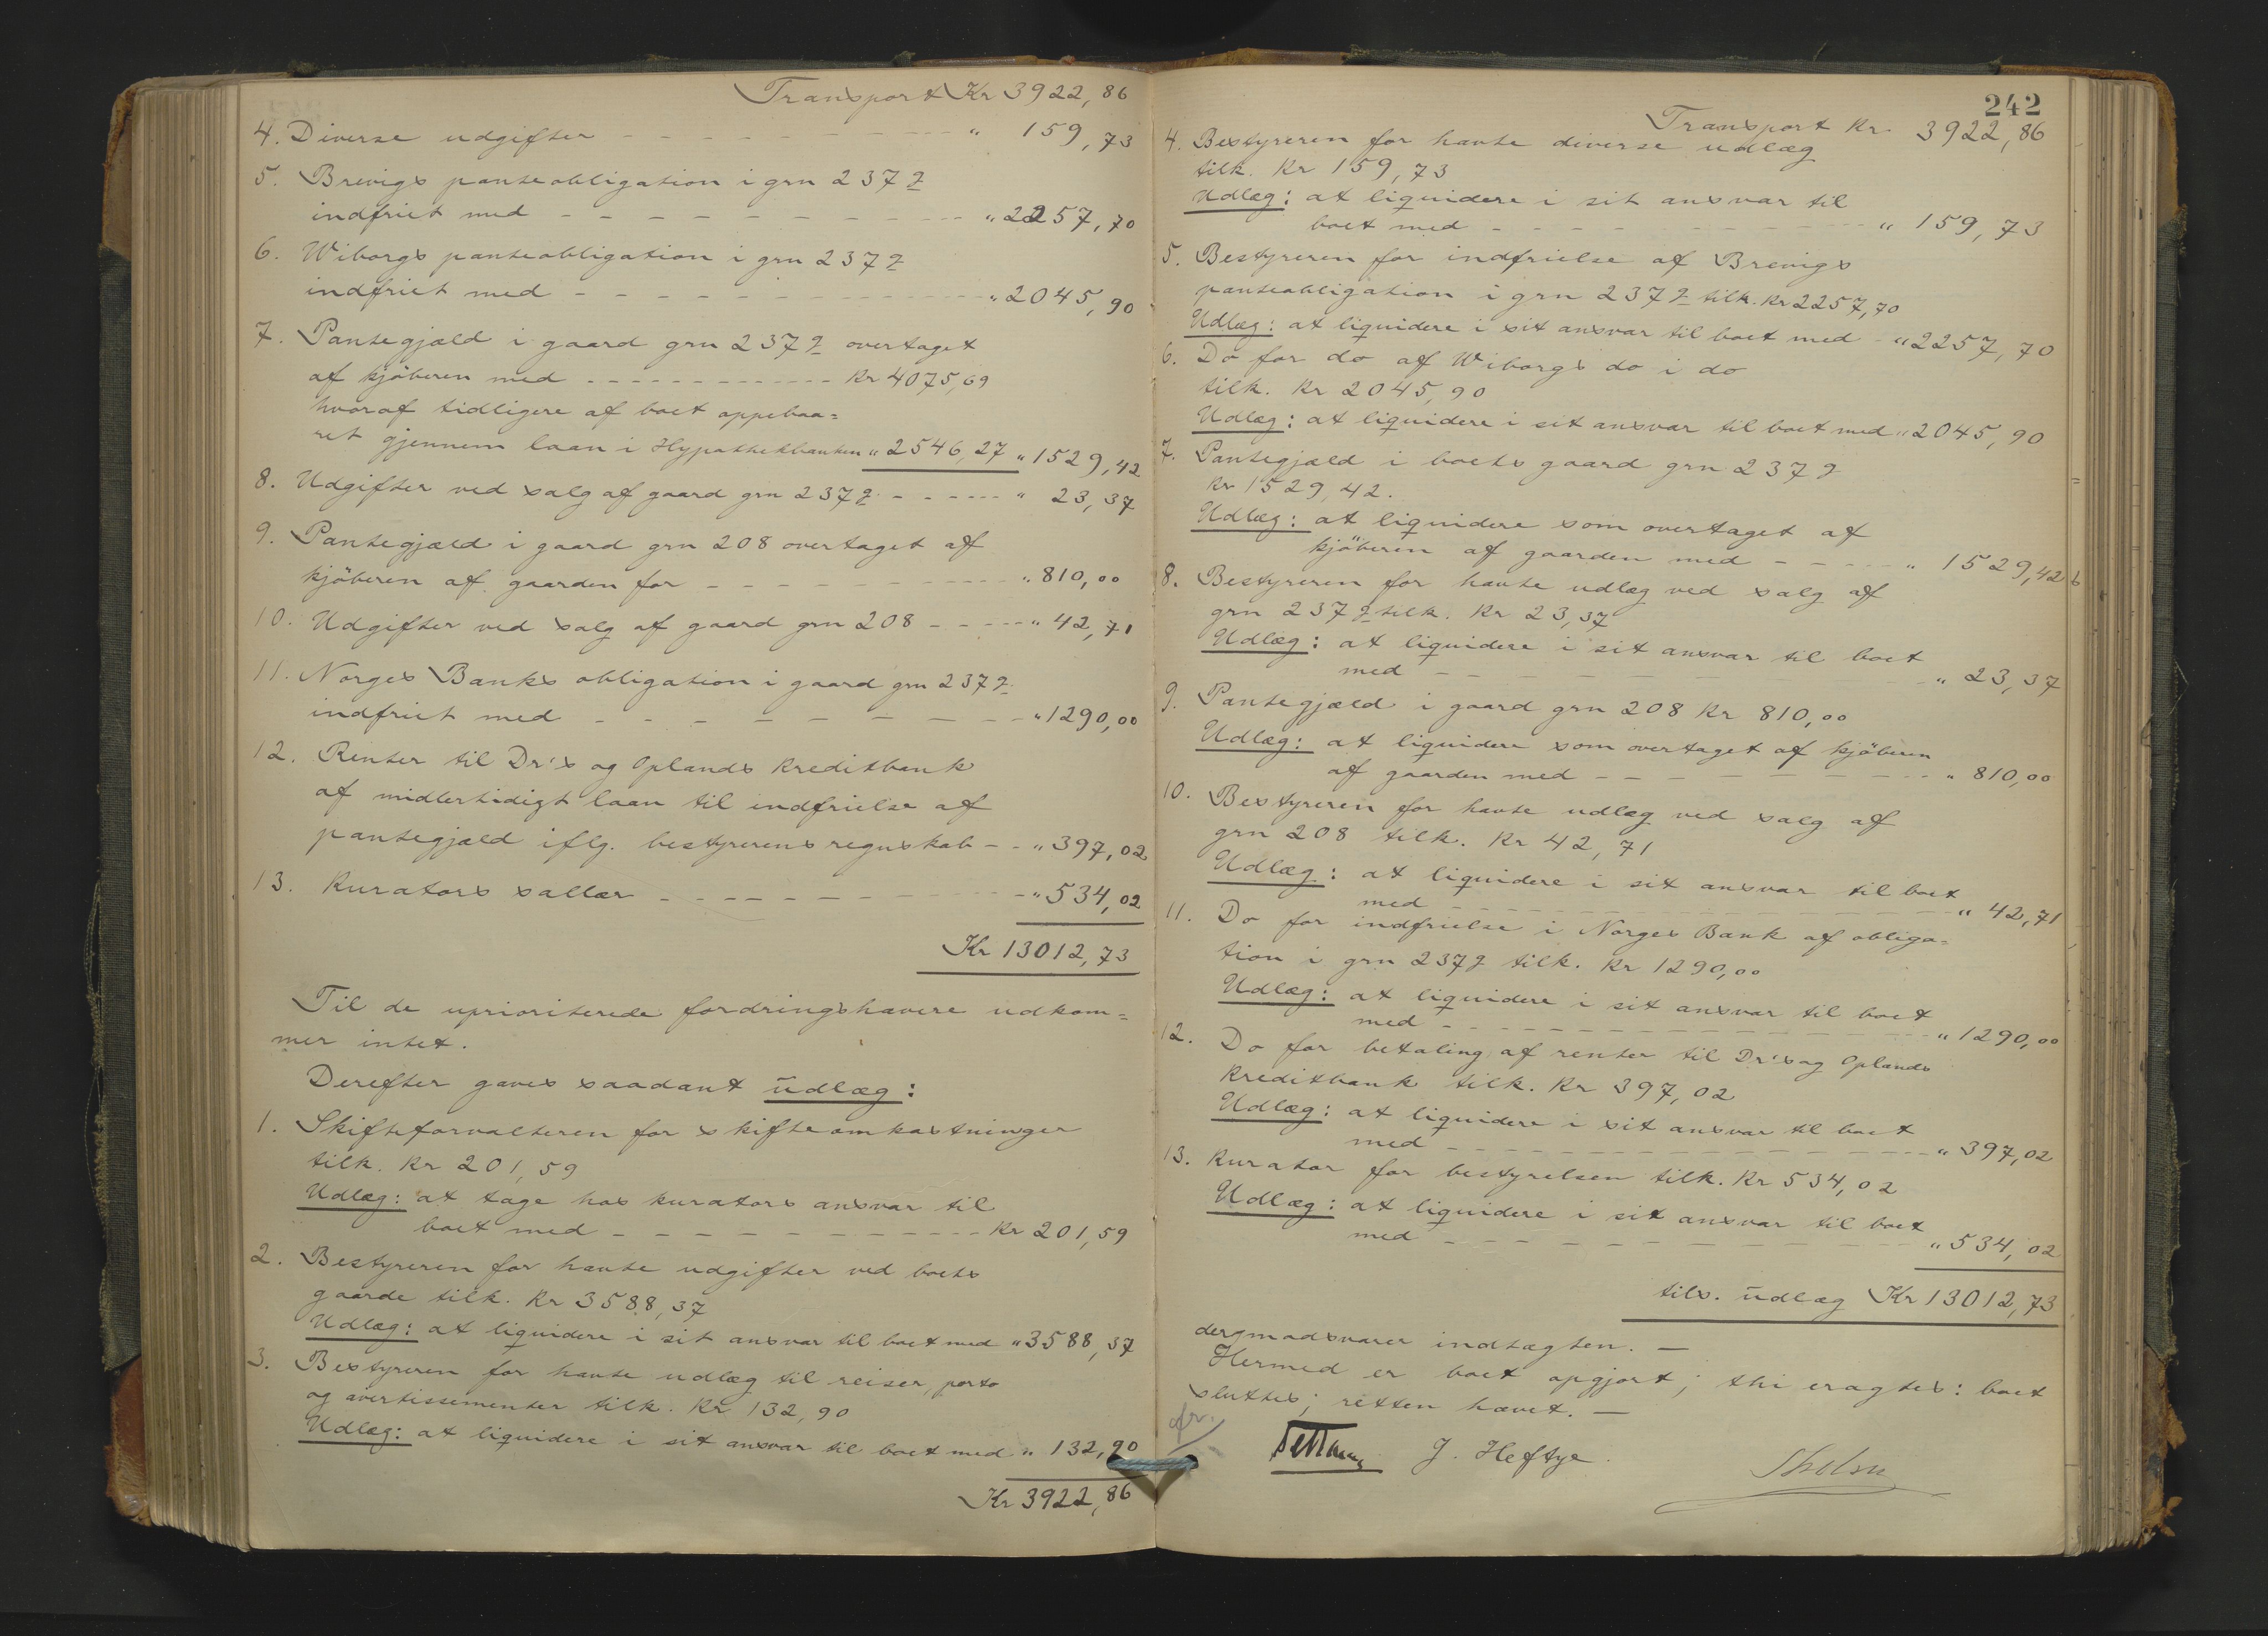 Transport Kr 3922,86
4. Diverse udgifter - - - - - - - - - " 159,73
5. Brevigs panteobligation i grn 237 g
indfriet med - - - - - - - - - - " 2257,70
6. Wiborgs panteobligation i grn 237 g
indfriet med - - - - - - - - - - " 2045,90
7. Pantegjæld i gaard grn 237 g overtaget
af kjöberen med - - - - - - - Kr 4075,69
hvoraf tidligere af boet oppebaa=
ret gjennem laan i Hypothekbanken " 2546,27 " 1529,42
8. Udgifter ved salg af gaard grn 237 g - - - - " 23,37
9. Pantegjæld i gaard grn 208 overtaget af
kjöberen af gaarden for - - - - - - - " 810,00
10. Udgifter ved salg af gaard grn 208 - - - - " 42,71
11. Norges Banks obligation i gaard grn 237 g
indfriet med - - - - - - - - - " 1290,00
12. Renter til Dr's og Oplands Kreditbank
af midlertidigt laan til indfrielse af
pantegjæld iflg. bestyrerens regnskab - - " 397,02
13. Kurators sallær - - - - - - - - - " 534,02
Kr 13012,73
Til de uprioriterede fordringshavere udkom=
mer intet.
Derefter gaves saadant udlæg:
1. Skifteforvalteren for skifteomkostninger
tilk. Kr 201,59
Udlæg: at tage hos kurators ansvar til
boet med - - - - - - - - - Kr 201,59
2. Bestyreren for havte udgifter ved boets
gaarde tilk. Kr 3588,37
Udlæg: at liquidere i sit ansvar til boet med " 3588,37
3. Bestyreren for havte udlæg til reiser, porto
og avertissementer tilk. Kr 132,90
Udlæg: at liquidere i sit ansvar til boet med " 132,90
Kr 3922,86
242
Transport Kr 3922,86
4. Bestyreren for havte diverse udlæg
tilk. Kr 159,73
Udlæg: at liquidere i sit ansvar til
boet med - - - - - - - - - " 159,73
5. Bestyreren for indfrielse af Brevigs
panteobligation i grn 237 g tilk. Kr 2257,70
Udlæg: at liquidere i sit ansvar til boet med - " 2257,70
6. Do for do af Wiborgs do i do
tilk. Kr 2045,90
Udlæg: at liquidere i sit ansvar til boet med " 2045,90
7. Pantegjæld i boets gaard grn 237 g
Kr 1529,42.
Udlæg: at liquidere som overtaget af
kjöberen af gaarden med - - - - - " 1529,42
8. Bestyreren for havte udlæg ved salg af
grn 237 g tilk. Kr 23,37
Udlæg: at liquidere i sit ansvar til boet
med - - - - - - - - - " 23,37
9. Pantegjæld i gaard grn 208 Kr 810,00
Udlæg: at liquidere som overtaget af kjöberen
af gaarden med - - - - - - - - " 810,00
10. Bestyreren for havte udlæg ved salg af
grn 208 tilk. Kr 42,71
Udlæg: at liquidere i sit ansvar til boet
med - - - - - - - - - " 42,71
11. Do for indfrielse i Norges Bank af obliga=
tion i grn 237 g tilk. Kr 1290,00
Udlæg: at liquidere i sit ansvar til boet
med - - - - - - - - - " 1290,00
12. Do for betaling af renter til Dr's og Oplands
Kreditbank tilk. Kr 397,02
Udlæg: at liquidere i sit ansvar til boet
med - - - - - - - - - " 397,02
13. Kurator for bestyrelsen tilk. Kr 534,02
Udlæg: at liquidere i sit ansvar til boet
med - - - - - - - - - " 534,02
tils. udlæg Kr 13012,73
der modsvarer indtægten. —
Hermed er boet opgjort; thi eragtes: boet
sluttes; retten hævet. —
J. Heftye.